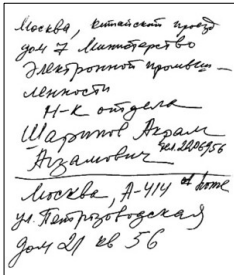 Москва, Китайский проезд
дом 7 Министерство
Электронной промыш-
ленности
Н-к отдела
Шарипов Акрам
Агзамович тел. 2206956
Москва, А-414 at home
ул. Петрозаводская
дом 21 кв 56